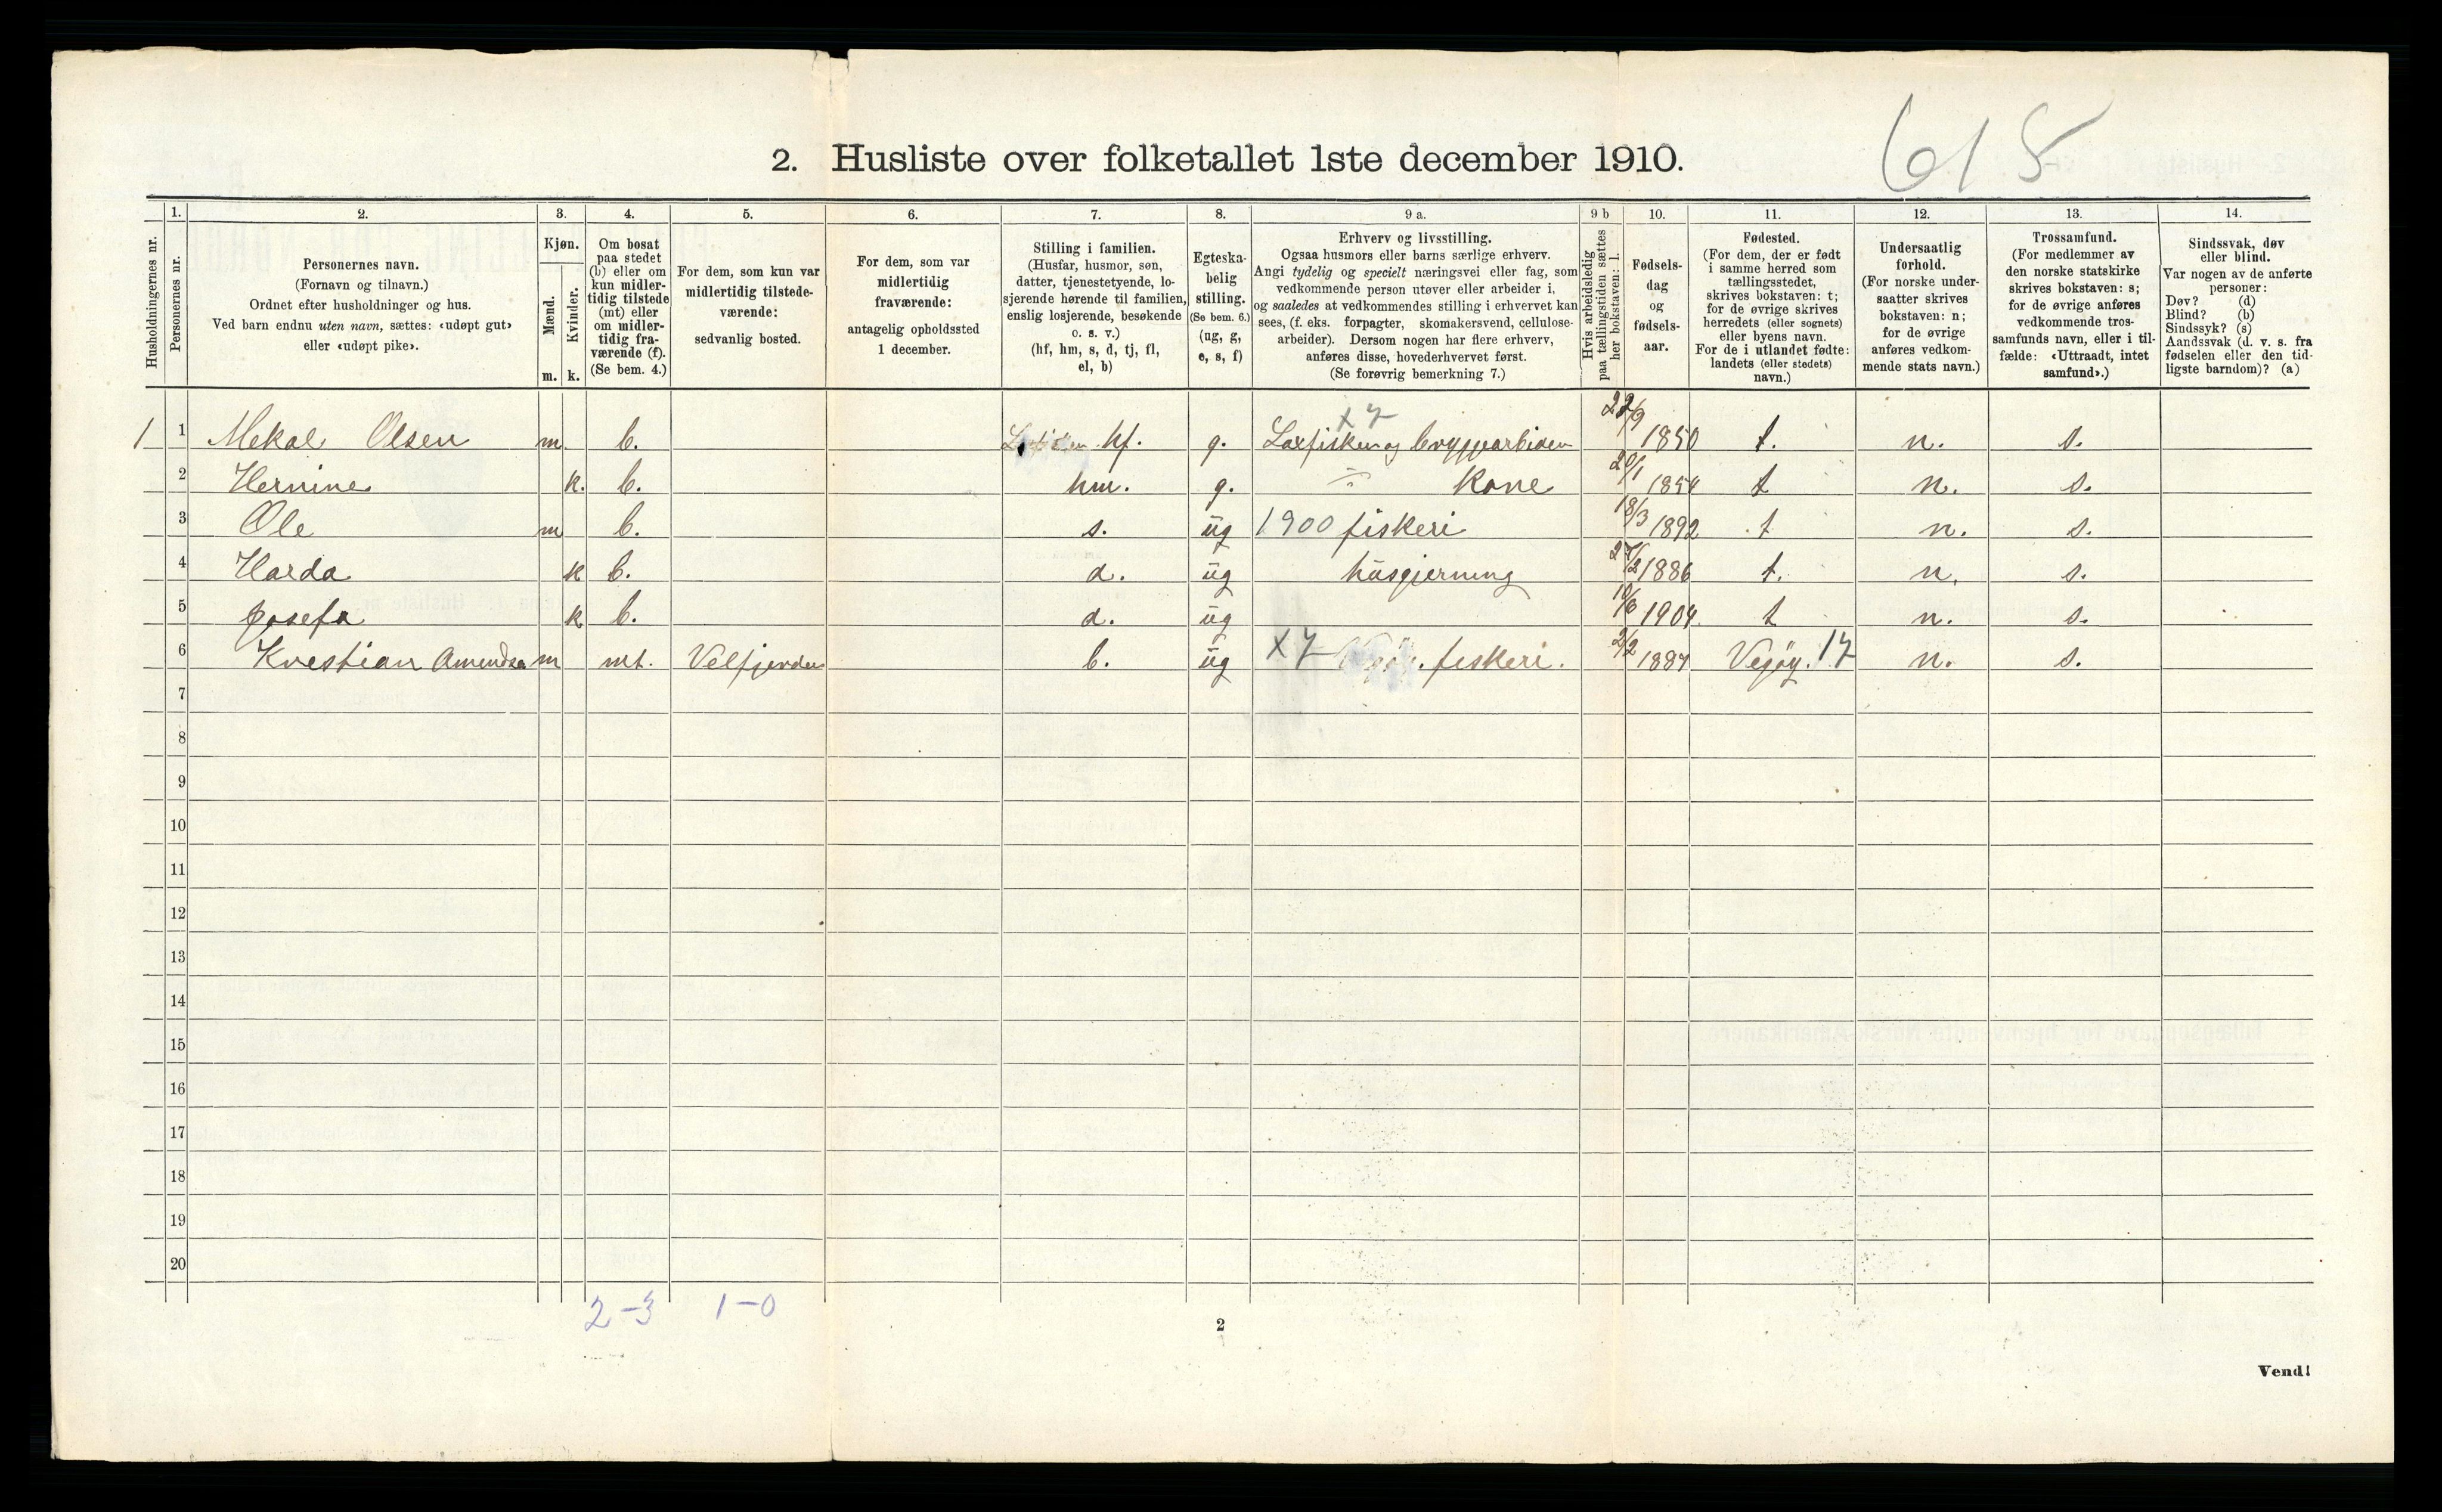 2. Husliste over folketallet 1ste december 1910.
615
Husholdningernes nr.
1.
Personernes nr.
2.
Personernes navn.
(Fornavn og tilnavn.)
Ordnet efter husholdninger og hus.
Ved barn endnu uten navn, sættes: «udøpt gut»
eller «udøpt pike».
3.
Kjøn.
Mænd.
Kvinder.
m. k.
4.
Om bosat
paa stedet
(b) eller om
kun midler-
tidig tilstede
(mt) eller
om midler-
tidig fra-
værende (f).
(Se bem. 4.)
5.
For dem, som kun var
midlertidig tilstede-
værende:
sedvanlig bosted.
6.
For dem, som var
midlertidig
fraværende:
antagelig opholdssted
1 december.
7.
Stilling i familien.
(Husfar, husmor, søn,
datter, tjenestetyende, lo-
sjerende hørende til familien,
enslig losjerende, besøkende
o. s. v.)
(hf, hm, s, d, tj, fl,
el, b)
8.
Egteska-
belig
stilling.
(Se bem. 6.)
(ug, g,
e, s, f)
9 a.
Erhverv og livsstilling.
Ogsaa husmors eller barns særlige erhverv.
Angi tydelig og specielt næringsvei eller fag, som
vedkommende person utøver eller arbeider i,
og saaledes at vedkommendes stilling i erhvervet kan
sees, (f. eks. forpagter, skomakersvend, cellulose-
arbeider). Dersom nogen har flere erhverv,
anføres disse, hovederhvervet først.
(Se forøvrig bemerkning 7.)
9 b
Hvis arbeidsledig
paa tællingstiden sættes
her bokstaven: l.
10.
Fødsels-
dag
og
fødsels-
aar.
11.
Fødested.
(For dem, der er født
i samme herred som
tællingsstedet,
skrives bokstaven: t;
for de øvrige skrives
herredets (eller sognets)
eller byens navn.
For de i utlandet fødte:
landets (eller stedets)
navn.)
12.
Undersaatlig
forhold.
(For norske under-
saatter skrives
bokstaven: n;
for de øvrige
anføres vedkom-
mende stats navn.)
13.
Trossamfund.
(For medlemmer av
den norske statskirke
skrives bokstaven: s;
for de øvrige anføres
vedkommende tros-
samfunds navn, eller i til-
fælde: «Uttraadt, intet
samfund».)
14.
Sindssvak, døv
eller blind.
Var nogen av de anførte
personer:
Døv? (d)
Blind? (b)
Sindssyk? (s)
Aandssvak (d. v. s. fra
fødselen eller den tid-
ligste barndom)? (a)
x 7
1 1 Mekal Olsen m b. hf. g. Laxfisker og bryggearbider 22/9 1850 t. n. s.
2 Hernine k. b. hm. g. Kone 20/1 1854 t n. s.
3 Ole m b. s. ug 1900 fiskeri 18/3 1892 t n. s.
4 Harda k b. d. ug husgjerning 27/2 1886 t. n. s.
5 Josefa k b. d. ug 1904 t n. s.
6 Krestian Amundsen m mt. Velfjorden b. ug x7 feskeri. 2/2 1887 Vegøy. 17 n. s.
7
8
9
10
11
12
13
14
15
16
17
18
19
20
2-3 1-0
2
Vend!